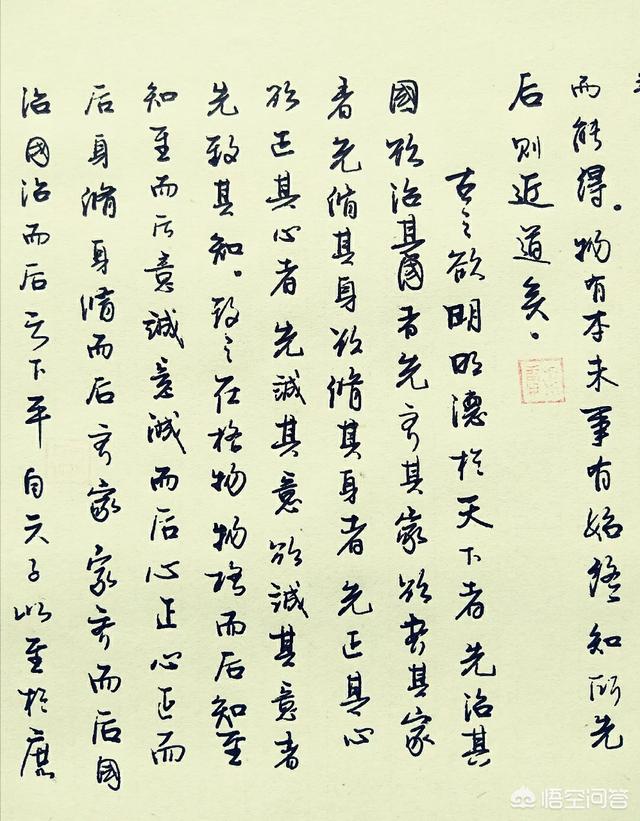 而能得。物有本末事有始終知所先
后则近道矣。
古之欲明明德於天下者先治其
國欲治其國者先齐其家欲齐其家
者先脩其身欲脩其身者先正其心
欲正其心者先誠其意欲誠其意者
先致其知。致之在格物物格而后知至
知至而后意誠意誠而后心正心正而
后身脩身脩而后齐家家齐而后國
治國治而后天下平自天子以至於庶
悟空问答